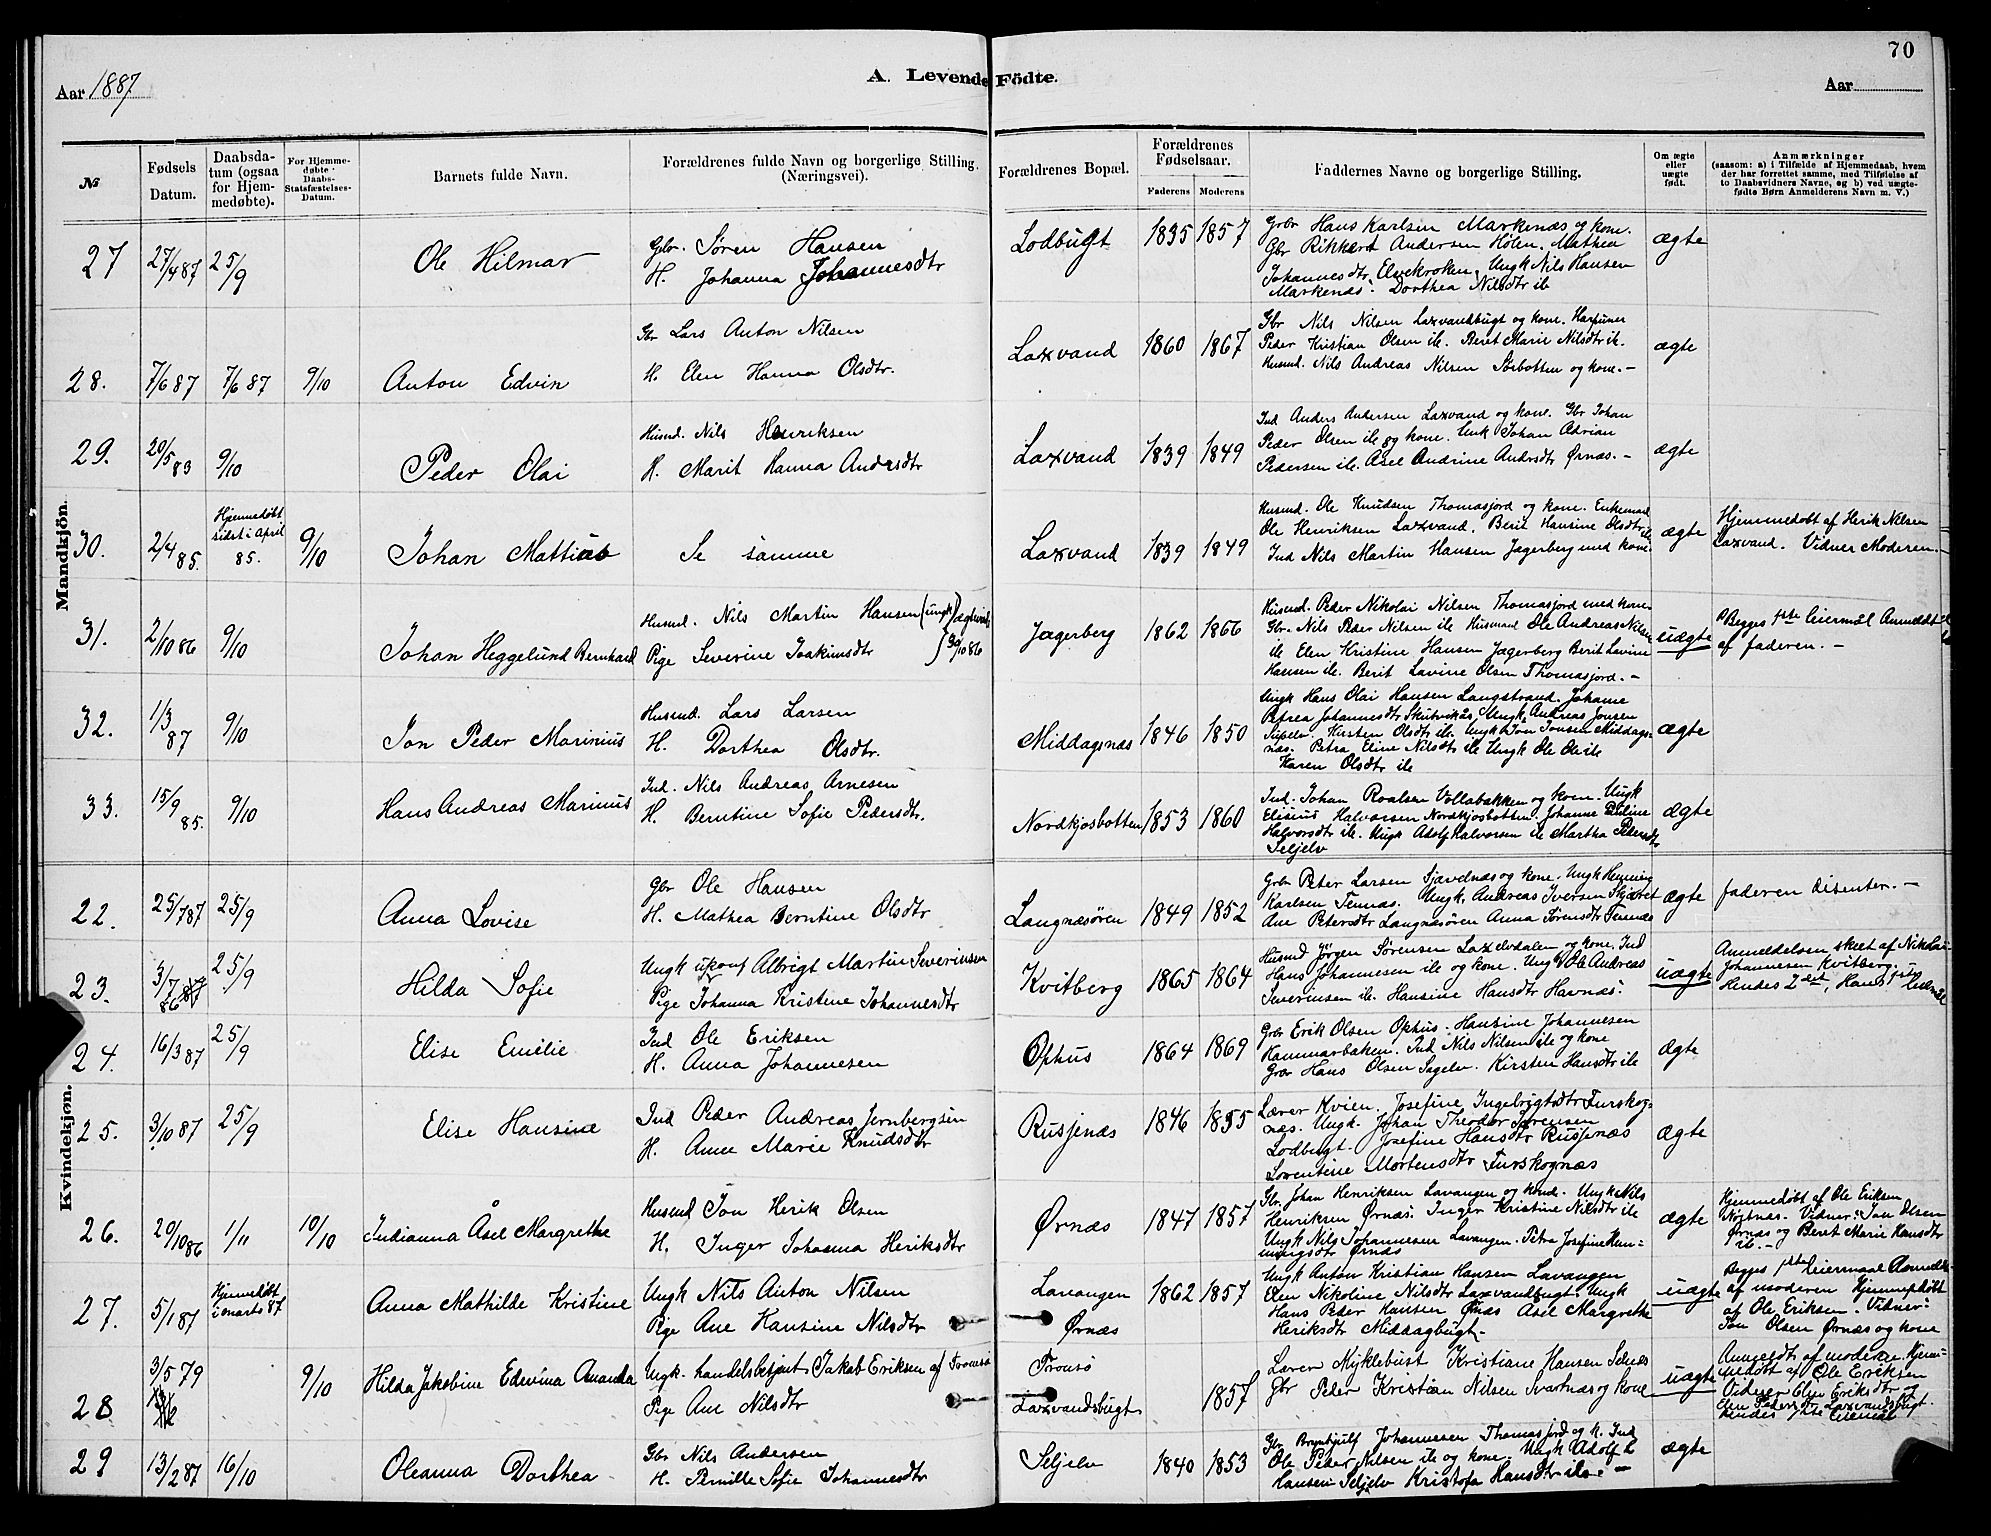 70
Aar 1887.
A. Levende Födte.
Aar
№
Fødsels Datum.
Daabsdatum (ogsaa for Hjemmedøbte).
For Hjemmedøbte: Daabs-Statsfæstelses-Datum.
Barnets fulde Navn.
Forældrenes fulde Navn og borgerlige Stilling. (Næringsvei).
Forældrenes Bopæl.
Forældrenes Fødselsaar.
Faderens
Moderens
Faddernes Navne og borgerlige Stilling.
Om ægte eller uægte født.
Anmærkninger
(saasom: a) i Tilfælde af Hjemmedaab, hvem
der har forrettet samme, med Tilføielse af
to Daabsvidners Navne, og b) ved uægte-
fødte Børn Anmelderens Navn m. V.)
Mandkjön.
27 27/4 87 25/9 Ole Hilmar
Gbr. Søren Hansen
H. Johanna Johannesdtr
Lodbugt 1835 1857
Gbr Hans Karlsen Markenæs og kone.
Gbr Rikkert Andersen Holen. Mathea
Johannesdtr Elvekroken. Ungk Nils Hansen
Markenæs. Dorthea Nilsdtr ile
ægte
28. 7/6 87 7/6 87 9/10 Anton Edvin
Gbr Lars Anton Nilsen
H. Elen Hanna Olsdtr.
Laxvand 1860 1867
Gbr Nils Nilsen Laxvandbugt og kone. Harpuner
Peder Kristian Olsen ile. Beret Marie Nilsdtr ile.
Husmd. Nils Andreas Nilsen Storbotten og kone. –
ægte
29. 20/5 83 9/10 Peder Olai
Husmd. Nils Henriksen
H. Marit Hanna Andersdtr
Laxvand 1839 1849
Ind Anders Andersen Laxvand og kone. Gbr Johan
Peder Olsen ile og kone. Unk Johan Adrian
Pedersen ile. Asel Andrine Andrsdtr Ørnæs. –
ægte
30. 2/4 85. Hjemmedøbt sidst i April 85. 9/10 Johan Mattias
Se samme
Laxvand 1839 1849
Husmd. Ole Knudsen Thomasjord og kone. Enkemand
Ole Henriksen Laxvand. Berit Hansine Olsdtr ile
Ind Nils Martin Hansen Jægerberg med kone.
ægte
Hjemmedøbt af Herik Nilsen
Laxvand. Vidner Moderen. –
31. 2/10 86 9/10 Johan Heggelund Bernhard
Husmd. Nils Martin Hansen (ungk)
Pige Severine Joakimsdtr
Jægerberg 1862 1866
Husmd. Peder Nikolai Nilsen Thomasjord med kone.
Gbr. Nils Peder Nilsen ile Husmand Ole Andreas Nilsen
ile Elen Kristine Hansen Jægerberg Berit Lavine
Hansen ile. Berit Lavine Olsen Thomasjord. –
uægte
Begges 1ste leiermål Anmeldt
af faderen. –
32. 1/3 87 9/10 Jon Peder Marinius
Husmd. Lars Larsen
H. Dorthea Olsdtr.
Middagsnæs 1846 1850
Ungk Hans Olai Hansen Langstrand. Johanne
Petrea Johannesdtr Skutvikås. Ungk Andreas Jonsen
Kirsten Olsdtr ile. Ungk Jon Jonsen Middags-
næs. Petra Eline Nilsdtr ile Ungk Ole Ole ile
Karen Olsdtr ile
ægte
33. 15/9 85. 9/10 Hans Andreas Marinius
Ind. Nils Andreas Arnesen
H. Berntine Sofie Pedersdtr.
Nordkjosbotten 1853 1860
Ind. Johan Roalsen Vollabakken og kone. Ungk
Elisius Halvorsen Nordkjosbotten. Johanne Pauline
Halvorsdtr ile. Ungk Adolf Halvorsen ile Martha Pedersdtr
Seljelv
ægte
Kvindekjøn.
22. 25/7 87 25/9 Anna Lovise
Gbr Ole Hansen
H. Mathea Berntine Olsdtr
Langnæsøren 1849 1852
Gbr Peter Larsen Sjavdnæs og kone. Ungk Henning
Karlsen Tennæs. Ungk. Andreas Iversen Skjæret
Ane Petersdtr Langnæsøren Anna Sørensdtr Tennæs
ægte
faderen disenter. –
23. 3/7 86 25/9 Hilda Sofie
Ungk Albrigt Martin Severinsen
Pige Johanna Kristine Johannesdtr
Kvitberg 1865 1864
Husmd Jørgen Sørensen Laxelvdalen og kone. Ind
Hans Johannesen ile og kone. Ungk Ole Andreas
Severinsen ile. Hansine Hansdtr Havnæs.
uægte
Anmeldelsen skeet af Nikolai
Johannesen Kvitberg.
Hendes 2det, Hans 1ste leiermål
24. 16/3 87 25/9 Elise Emilie
Ind Ole Eriksen
H. Anna Johannesen
Ophus 1864 1869
Gbr Erik Olsen Ophus. Hansine Johannesen
Hammarbaken. Ind Nils Nilsen ile og kone
Gbr Hans Olsen Sagelv. Kirsten Hansdtr ile
ægte
25. 3/10 87 25/9 Elise Hansine
Ind Peder Andreas Jernbergsen
H. Anne Marie Knudsdtr
Rusjenæs 1846 1855
Lærer Kvien. Josefine Ingebrigtsdtr Furskog-
næs. Ungk. Johan Theodor Sørensen
Lodbugt. Josefine Hansdtr Rusjenæs
Lorentine Mortensdtr Furskognæs
ægte
26. 20/10 86 1/11 10/10 Indianna Åsel Margrethe
Husmd Jon Herik Olsen
H. Inger Johanna Heriksdtr
Ørnæs 1847 1857
Gbr. Johan Henriksen Lavangen og kone. Ungk Nils
Henriksen Ørnæs. Inger Kristine Nilsdtr ile
Ungk Nils Johannesen Lavangen. Petra Josefine Hen-
ningsdtr Ørnæs
ægte
Hjemmedøbt af Ole Eriksen
Vidner: Jon Olsen
Ørnæs og Beret Marie Hansdtr
ile. –
27. 5/1 87 Hjemmedøbt i marts 87 Anna Mathilde Kristine
Ungk Nils Anton Nilsen
Pige Ane Hansine Nilsdtr
Lavangen
Ørnæs
1862 1857
Ungk Anton Kristian Hansen Lavangen
Elen Nikoline Nilsdtr Laxvandbugt. Ungk
Hans Peder Hansen Ørnæs Asel Margrethe
Heriksdtr Middagbugt. –
uægte
Begges 1ste leiermaal Anmeldt
af moderen Hjemmedøbt
af Ole Eriksen. Vidner:
Jon Olsen Ørnæs og kone
28 3/5 79 9/10 Hilda Jakobine Edevina Amanda
Ungk. handelsbetjent Jakob Eriksen af Tromsø
Pige Ane Nilsdtr
Tromsø
Laxvandsbugt
1857
Lærer Myklebust Kristiane Hansen Selnes
Gbr Peder Kristian Nilsen Svartnæs og kone
uægte
Anmeldt af moderen. Hjem-
medøbt af Ole Eriksen
Vidner Elen Eriksdtr og
Elen Pedersdtr Laxvandsbugt.
Hendes 1ste leiermål
29 13/2 87 16/10 Oleanna Dorthea
Gbr Nils Andersen
H. Pernille Sofie Johannesdtr
Seljelv 1840 1853
Gbr Brynhjulf Johannesen Thomasjord og k. Ind
Ole Peder Nilsen ile og kone. Ungk Adolf
Hansen Seljelv Kristofa Hansdtr ile. –
ægte